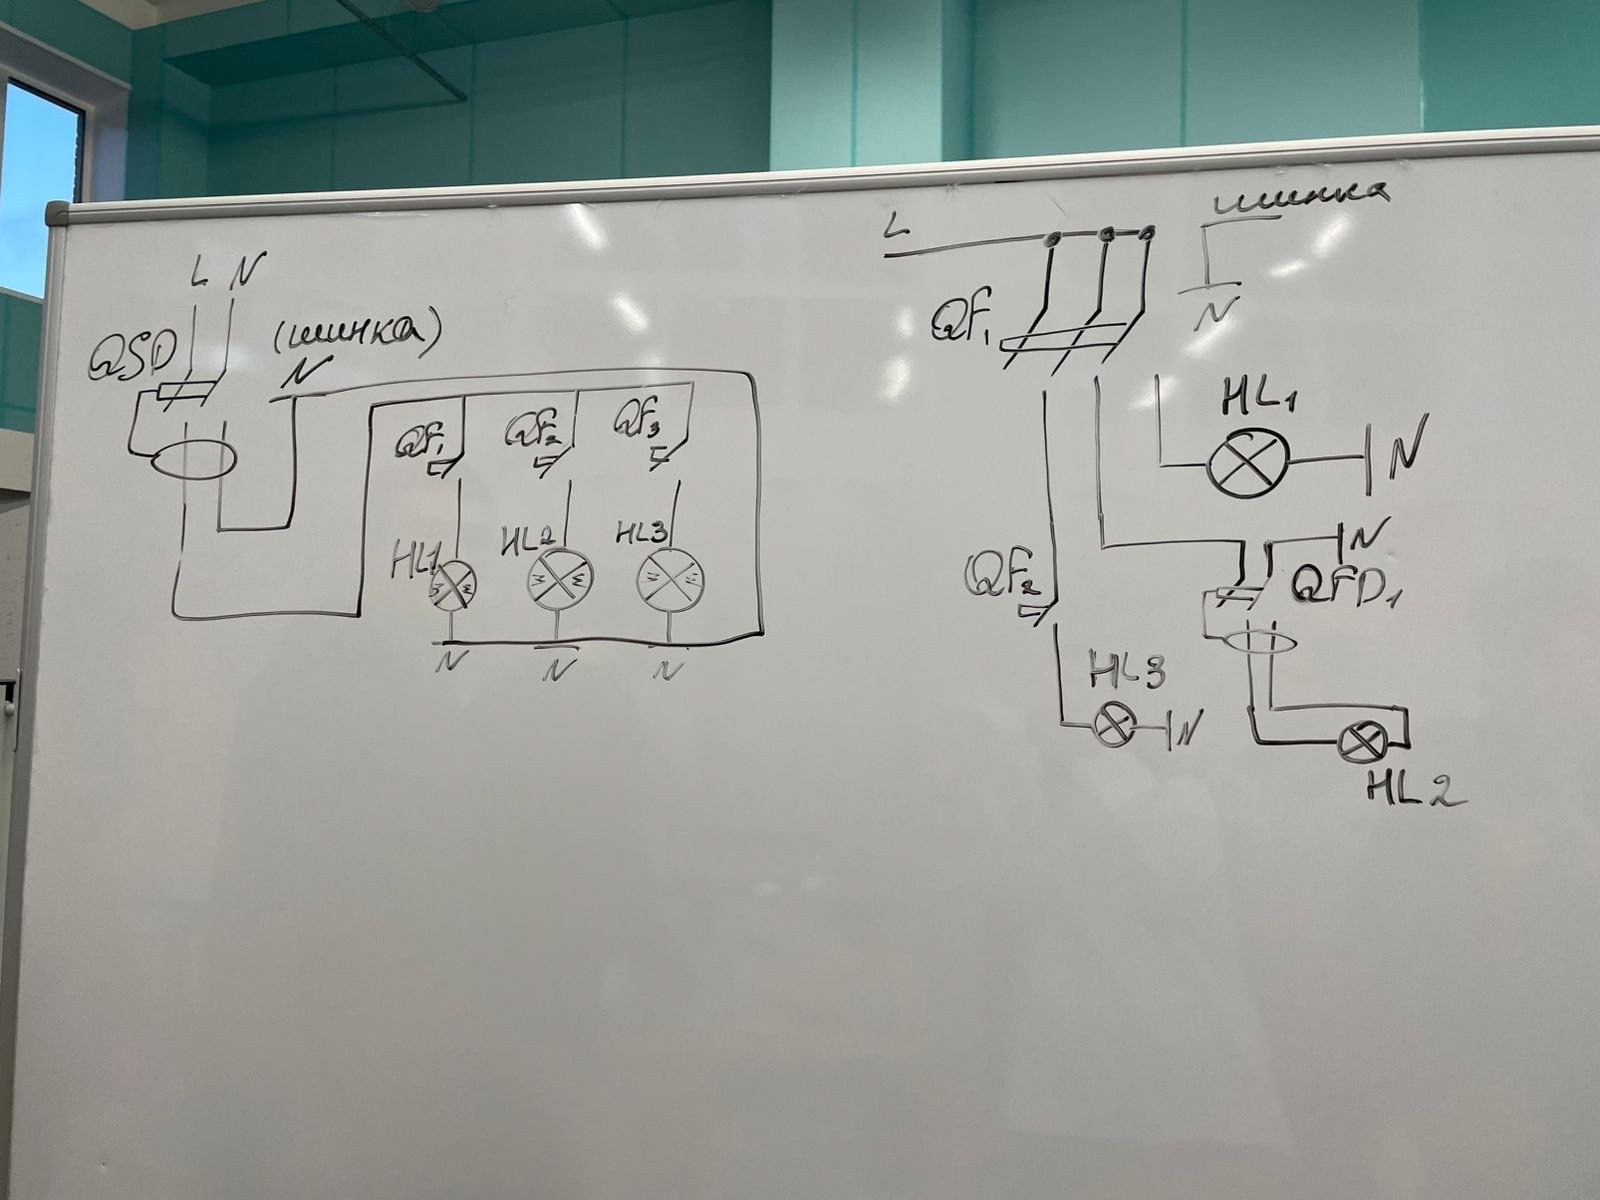 L N
QSD
(шинка)
N
QF₁ QF₂ QF₃
HL1 HL2 HL3
N N N
L
шинка
N
QF₁
HL₁
N
N
QF₂
QFD₁
HL3
N
HL2